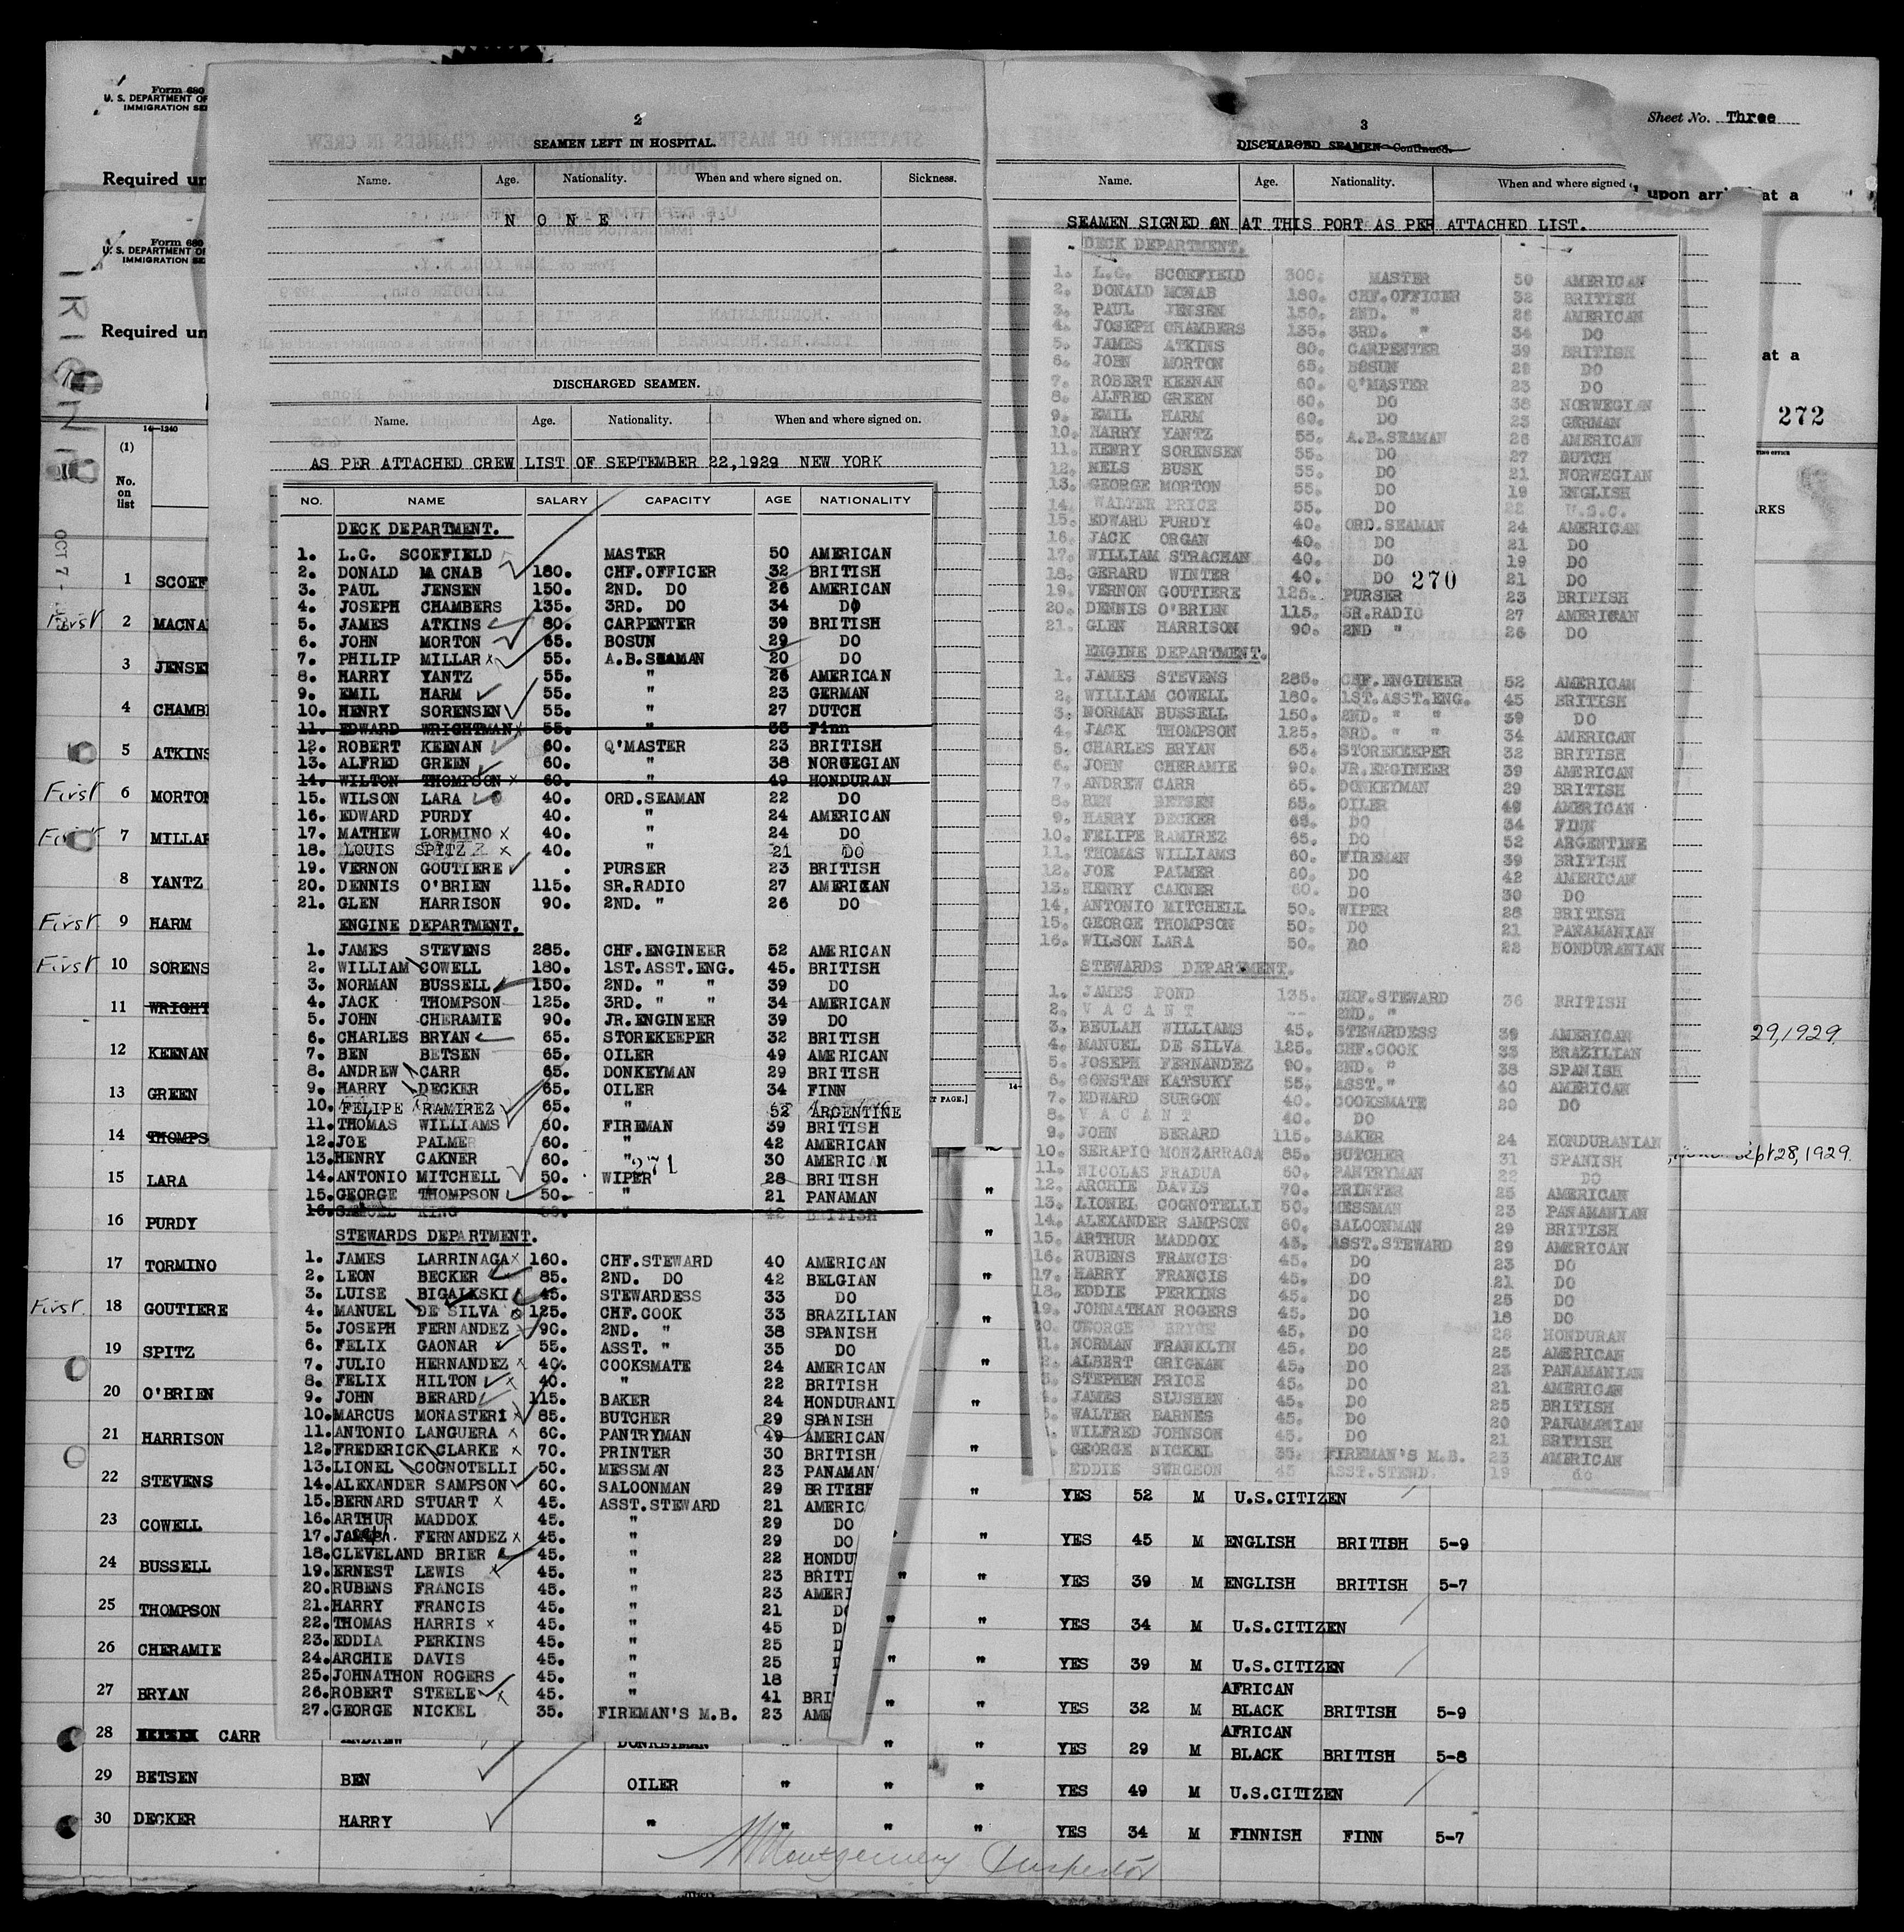 Form 680
U. S. DEPARTMENT OF
IMMIGRATION SE
Required un
Form 680
U. S. DEPARTMENT OF
IMMIGRATION SE
Required un
Sheet No. Three
upon arr at a
at a
272
RKS
29,1929.
Sept 28,1929.
OCT 7
14-1240
(1)
No.
on
list
1 SCOEF
First 2 MACNA
3 JENSE
4 CHAMB
5 ATKINS
First 6 MORTON
7 MILLAR
8 YANTZ
First 9 HARM
First 10 SORENS
11 WRIGHT
12 KEENAN
13 GREEN
14 THOMPS
15 LARA
16 PURDY
17 TORMINO
First. 18 GOUTIERE
19 SPITZ
20 O'BRIEN
21 HARRISON
22 STEVENS
23 COWELL
24 BUSSELL
25 THOMPSON
26 CHERAMIE
27 BRYAN
28 CARR
29 BETSEN
30 DECKER
2
SEAMEN LEFT IN HOSPITAL.
Name. Age. Nationality. When and where signed on. Sickness.
N O N E
DISCHARGED SEAMEN.
Name. Age. Nationality. When and where signed on.
AS PER ATTACHED CREW LIST OF SEPTEMBER 22,1929 NEW YORK
NO. NAME SALARY CAPACITY AGE NATIONALITY
DECK DEPARTMENT.
1. L.G. SCOEFIELD MASTER 50 AMERICAN
2. DONALD MACNAB 180. CHF.OFFICER 32 BRITISH
3. PAUL JENSEN 150. 2ND. DO 26 AMERICAN
4. JOSEPH CHAMBERS 135. 3RD. DO 34 DO
5. JAMES ATKINS 80. CARPENTER 39 BRITISH
6. JOHN MORTON 65. BOSUN 29 DO
7. PHILIP MILLAR x 55. A.B.SEAMAN 20 DO
8. HARRY YANTZ 55. " 26 AMERICAN
9. EMIL HARM 55. " 23 GERMAN
10. HENRY SORENSEN 55. " 27 DUTCH
11. EDWARD WRIGHTMAN 55. " 35 Finn
12. ROBERT KEENAN 60. Q'MASTER 23 BRITISH
13. ALFRED GREEN 60. " 38 NORGEGIAN
14. WILTON THOMPSON x 60. " 49 HONDURAN
15. WILSON LARA 40. ORD.SEAMAN 22 DO
16. EDWARD PURDY 40. " 24 AMERICAN
17. MATHEW LORMINO x 40. " 24 DO
18. LOUIS SPITZ x 40. " 21 DO
19. VERNON GOUTIERE . PURSER 23 BRITISH
20. DENNIS O'BRIEN 115. SR.RADIO 27 AMERICAN
21. GLEN HARRISON 90. 2ND. " 26 DO
ENGINE DEPARTMENT.
1. JAMES STEVENS 285. CHF.ENGINEER 52 AMERICAN
2. WILLIAM COWELL 180. 1ST.ASST.ENG. 45. BRITISH
3. NORMAN BUSSELL 150. 2ND. " " 39 DO
4. JACK THOMPSON 125. 3RD. " " 34 AMERICAN
5. JOHN CHERAMIE 90. JR.ENGINEER 39 DO
6. CHARLES BRYAN 65. STOREKEEPER 32 BRITISH
7. BEN BETSEN 65. OILER 49 AMERICAN
8. ANDREW CARR 65. DONKEYMAN 29 BRITISH
9. HARRY DECKER 65. OILER 34 FINN
10. FELIPE RAMIREZ 65. " 52 ARGENTINE
11. THOMAS WILLIAMS 60. FIREMAN 39 BRITISH
12. JOE PALMER 60. " 42 AMERICAN
13. HENRY CAKNER 60. " 30 AMERICAN
271
14. ANTONIO MITCHELL 50. WIPER 28 BRITISH
15. GEORGE THOMPSON 50. " 21 PANAMAN
16. SAMUEL KING 50. " 42 BRITISH
STEWARDS DEPARTMENT.
1. JAMES LARRINAGA x 160. CHF.STEWARD 40 AMERICAN
2. LEON BECKER 85. 2ND. DO 42 BELGIAN
3. LUISE BIGALKSKI 45. STEWARDESS 33 DO
4. MANUEL DE SILVA 125. CHF.COOK 33 BRAZILIAN
5. JOSEPH FERNANDEZ 90. 2ND. " 38 SPANISH
6. FELIX GAONAR 55. ASST. " 35 DO
7. JULIO HERNANDEZ x 40. COOKSMATE 24 AMERICAN
8. FELIX HILTON x 40. " 22 BRITISH
9. JOHN BERARD 115. BAKER 24 HONDURANI
10. MARCUS MONASTERI x 85. BUTCHER 29 SPANISH
11. ANTONIO LANGUERA x 60. PANTRYMAN 49 AMERICAN
12. FREDERICK CLARKE x 70. PRINTER 30 BRITISH
13. LIONEL COGNOTELLI 50. MESSMAN 23 PANAMAN
14. ALEXANDER SAMPSON 60. SALOONMAN 29 BRITISH
15. BERNARD STUART x 45. ASST.STEWARD 21 AMERIC
16. ARTHUR MADDOX 45. " 29 DO
17. Joseph. FERNANDEZ x 45. " 29 DO
18. CLEVELAND BRIER 45. " 22 HONDU
19. ERNEST LEWIS x 45. " 23 BRITI
20. RUBENS FRANCIS 45. " 23 AMERI
21. HARRY FRANCIS 45. " 21 DO
22. THOMAS HARRIS x 45. " 45 D
23. EDDIA PERKINS 45. " 25 D
24. ARCHIE DAVIS 45. " 25 D
25. JOHNATHON ROGERS 45. " 18
26. ROBERT STEELE x 45. " 41 BRI
27. GEORGE NICKEL 35. FIREMAN'S M.B. 23 AME
3
DISCHARGED SEAMEN—Continued.
Name. Age. Nationality. When and where signed
SEAMEN SIGNED ON AT THIS PORT AS PER ATTACHED LIST.
DECK DEPARTMENT.
1. L.G. SCOEFIELD 300. MASTER 50 AMERICAN
2. DONALD MCNAB 180. CHF.OFFICER 32 BRITISH
3. PAUL JENSEN 150. 2ND. " 26 AMERICAN
4. JOSEPH CHAMBERS 135. 3RD. " 34 DO
5. JAMES ATKINS 80. CARPENTER 39 BRITISH
6. JOHN MORTON 65. BOSUN 29 DO
7. ROBERT KEENAN 60. Q'MASTER 23 DO
8. ALFRED GREEN 60. DO 38 NORWEGIAN
9. EMIL HARM 60. DO 23 GERMAN
10. HARRY YANTZ 55. A.B.SEAMAN 26 AMERICAN
11. HENRY SORENSEN 55. DO 27 DUTCH
12. NELS BUSK 55. DO 21 NORWEGIAN
13. GEORGE MORTON 55. DO 19 ENGLISH
14. WALTER PRICE 55. DO 22 U.S.C.
15. EDWARD PURDY 40. ORD.SEAMAN 24 AMERICAN
16. JACK ORGAN 40. DO 21 DO
17. WILLIAM STRACHAN 40. DO 19 DO
18. GERARD WINTER 40. DO 270 21 DO
19. VERNON GOUTIERE 125. PURSER 23 BRITISH
20. DENNIS O'BRIEN 115. SR.RADIO 27 AMERICAN
21. GLEN HARRISON 90. 2ND " 26 DO
ENGINE DEPARTMENT.
1. JAMES STEVENS 285. CHF.ENGINEER 52 AMERICAN
2. WILLIAM COWELL 180. 1ST.ASST.ENG. 45 BRITISH
3. NORMAN BUSSELL 150. 2ND. " " 39 DO
4. JACK THOMPSON 125. 3RD. " " 34 AMERICAN
5. CHARLES BRYAN 65. STOREKEEPER 32 BRITISH
6. JOHN CHERAMIE 90. JR.ENGINEER 39 AMERICAN
7. ANDREW CARR 65. DONKEYMAN 29 BRITISH
8. BEN BETSEN 65. OILER 49 AMERICAN
9. HARRY DECKER 65. DO 34 FINN
10. FELIPE RAMIREZ 65. DO 52 ARGENTINE
11. THOMAS WILLIAMS 60. FIREMAN 39 BRITISH
12. JOE PALMER 60. DO 42 AMERICAN
13. HENRY CAKNER 60. DO 30 DO
14. ANTONIO MITCHELL 50. WIPER 28 BRITISH
15. GEORGE THOMPSON 50. DO 21 PANAMANIAN
16. WILSON LARA 50. DO 22 HONDURANIAN
STEWARDS DEPARTMENT.
1. JAMES POND 135. CHF.STEWARD 36 BRITISH
2. V A C A N T -- 2ND. "
3. BEULAH WILLIAMS 45. STEWARDESS 39 AMERICAN
4. MANUEL DE SILVA 125. CHF.COOK 33 BRAZILIAN
5. JOSEPH FERNANDEZ 90. 2ND. " 38 SPANISH
6. CONSTAN KATSUKY 55. ASST." 40 AMERICAN
7. EDWARD SURGON 40. COOKSMATE 20 DO
8. V A C A N T 40. DO
9. JOHN BERARD 115. BAKER 24 HONDURANIAN
10. SERAPIO MONZARRAGA 85. BUTCHER 31 SPANISH
11. NICOLAS FRADUA 60. PANTRYMAN 22 DO
12. ARCHIE DAVIS 70. PRINTER 25 AMERICAN
13. LIONEL COGNOTELLI 50. MESSMAN 23 PANAMANIAN
14. ALEXANDER SAMPSON 60. SALOONMAN 29 BRITISH
15. ARTHUR MADDOX 45. ASST.STEWARD 29 AMERICAN
16. RUBENS FRANCIS 45. DO 23 DO
17. HARRY FRANCIS 45. DO 21 DO
18. EDDIE PERKINS 45. DO 25 DO
19. JOHNATHAN ROGERS 45. DO 18 DO
20. GEORGE BRYCE 45. DO 28 HONDURAN
1. NORMAN FRANKLYN 45. DO 25 AMERICAN
2. ALBERT GRIGNAN 45. DO 23 PANAMANIAN
3. STEPHEN PRICE 45. DO 21 AMERICAN
4. JAMES SLUSHEN 45. DO 25 BRITISH
5. WALTER BARNES 45. DO 20 PANAMANIAN
WILFRED JOHNSON 45. DO 21 BRITISH
GEORGE NICKEL 35. FIREMAN'S M.B. 23 AMERICAN
EDDIE SURGEON 45 ASST.STEWD. 19 do
T PAGE.]
" YES 52 M U.S.CITIZEN
" YES 45 M ENGLISH BRITISH 5-9
" " YES 39 M ENGLISH BRITISH 5-7
" " YES 34 M U.S.CITIZEN
" " YES 39 M U.S.CITIZEN
" " YES 32 M AFRICAN BLACK BRITISH 5-9
ANDREW DONKEYMAN " " " YES 29 M AFRICAN BLACK BRITISH 5-8
BEN OILER " " " YES 49 M U.S.CITIZEN
HARRY " " " " YES 34 M FINNISH FINN 5-7
Montgomery Inspector